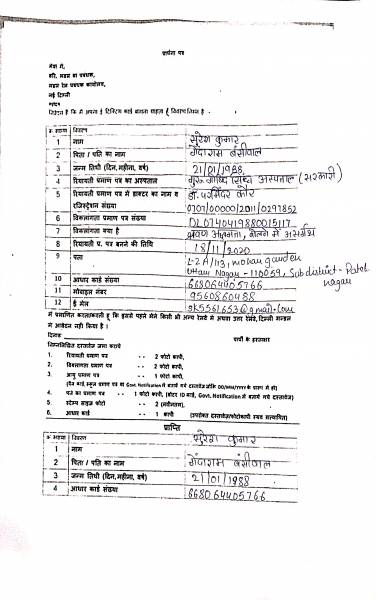 प्रार्थना पत्र
सेवा में,
वरि. मंडल वा प्रबंधक,
मंडल रेल प्रबंधक कार्यालय,
नई दिल्ली
महोदय
निवेदन है कि मैं अपना ई टिकटिंग कार्ड बनवाना चाहता हूं विवरण निम्न है -
क्र. संख्या विवरण
1 नाम सुरेश कुमार
2 पिता / पति का नाम गेंदाराम बंसीवाल
3 जन्म तिथी (दिन, महीना, वर्ष) 21/01/1988
4 रियायती प्रमाण पत्र का अस्पताल गुरु गोबिंद सिंह अस्पताल (सरकारी)
5 रियायती प्रमाण पत्र में डाक्टर का नाम व डॉ. परमिंदर कौर
रजिस्ट्रेशन संख्या 0707/00000/2011/0297852
6 विकलांगता प्रमाण पत्र संख्या DL0740419880015117
7 विकलांगता क्या है श्रवण अक्षमता, बोलने में असमर्थ
8 रियायती प्र. पत्र बनने की तिथि 18/11/2020
9 पता L-2A/113, mohan garden
Uttam Nagar - 110059, Sub district - Patel
nagar
10 आधार कार्ड संख्या 668064405766
11 मोबाइल नंबर 9560860488
12 ई मेल sk5561653@gmail.com
मैं प्रमाणित करता/करती हूं कि इससे पहले मैंने किसी भी अन्य रेलवे में अथवा उत्तर रेलवे, दिल्ली मण्डल
में आवेदन नही किया है ।
दिनांक प्रार्थी के हस्ताक्षर
निम्नलिखित दस्तावेज जमा कराये
1. रियायती प्रमाण पत्र -- 2 फोटो कापी,
2. विकलांगता प्रमाण पत्र -- 2 फोटो कापी,
3. आयु प्रमाण पत्र -- 2 फोटो कापी,
(पैन कार्ड, स्कूल प्रमाण पत्र या Govt. Notification में बताये गये दस्तावेज जोकि DD/MM/YYYY के प्रारूप में हों)
4. पते का प्रमाण पत्र -- 1 फोटो कापी, (वोटर ID कार्ड, Govt. Notification में बताये गये दस्तावेज)
5. स्टेम्प साइज फोटो -- 2 (नवीनतम),
6. आधार कार्ड -- 1 कापी (उपरोक्त दस्तावेज/फोटोकापी स्वयं सत्यापित)
प्राप्ति
क्र. संख्या विवरण
1 नाम सुरेश कुमार
2 पिता / पति का नाम गेंदाराम बंसीवाल
3 जन्म तिथी (दिन, महीना, वर्ष) 21/01/1988
4 आधार कार्ड संख्या 668064405766